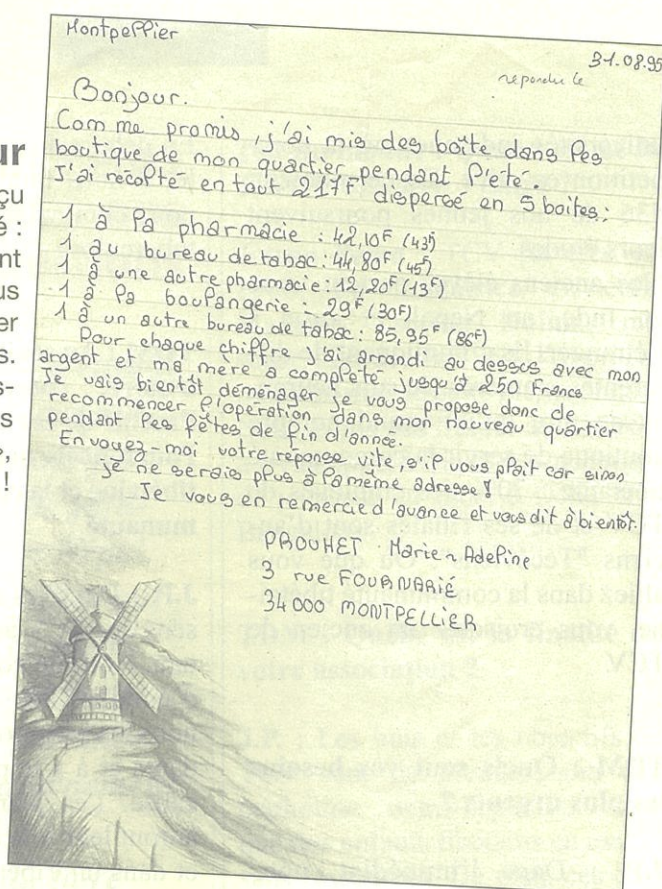 Montpellier
31.08.95
repondu le
Bonjour.
Comme promis, j'ai mis des boîte dans les
boutique de mon quartier pendant l'eté.
J'ai récolté en tout 217F dispersé en 5 boites :
1 à la pharmacie : 42,10F (43F)
1 au bureau de tabac : 44,80F (45F)
1 à une autre pharmacie : 12,20F (13F)
1 à la boulangerie : 29F (30F)
1 à un autre bureau de tabac : 85,95F (86F)
Pour chaque chiffre j'ai arrondi au dessus avec mon
argent et ma mère a complété jusqu'à 250 francs
Je vais bientôt déménager je vous propose donc de
recommencer l'opération dans mon nouveau quartier
pendant les fêtes de fin d'année.
Envoyez-moi votre réponse vite, s'il vous plait car sinon
je ne serais plus à la même adresse !
Je vous en remercie d'avance et vous dit à bientôt.
PROUHET Marie-Adeline
3 rue FOURNARIÉ
34000 MONTPELLIER
ur
çu
é :
nt
us
er
s.
s-
s
»,
!